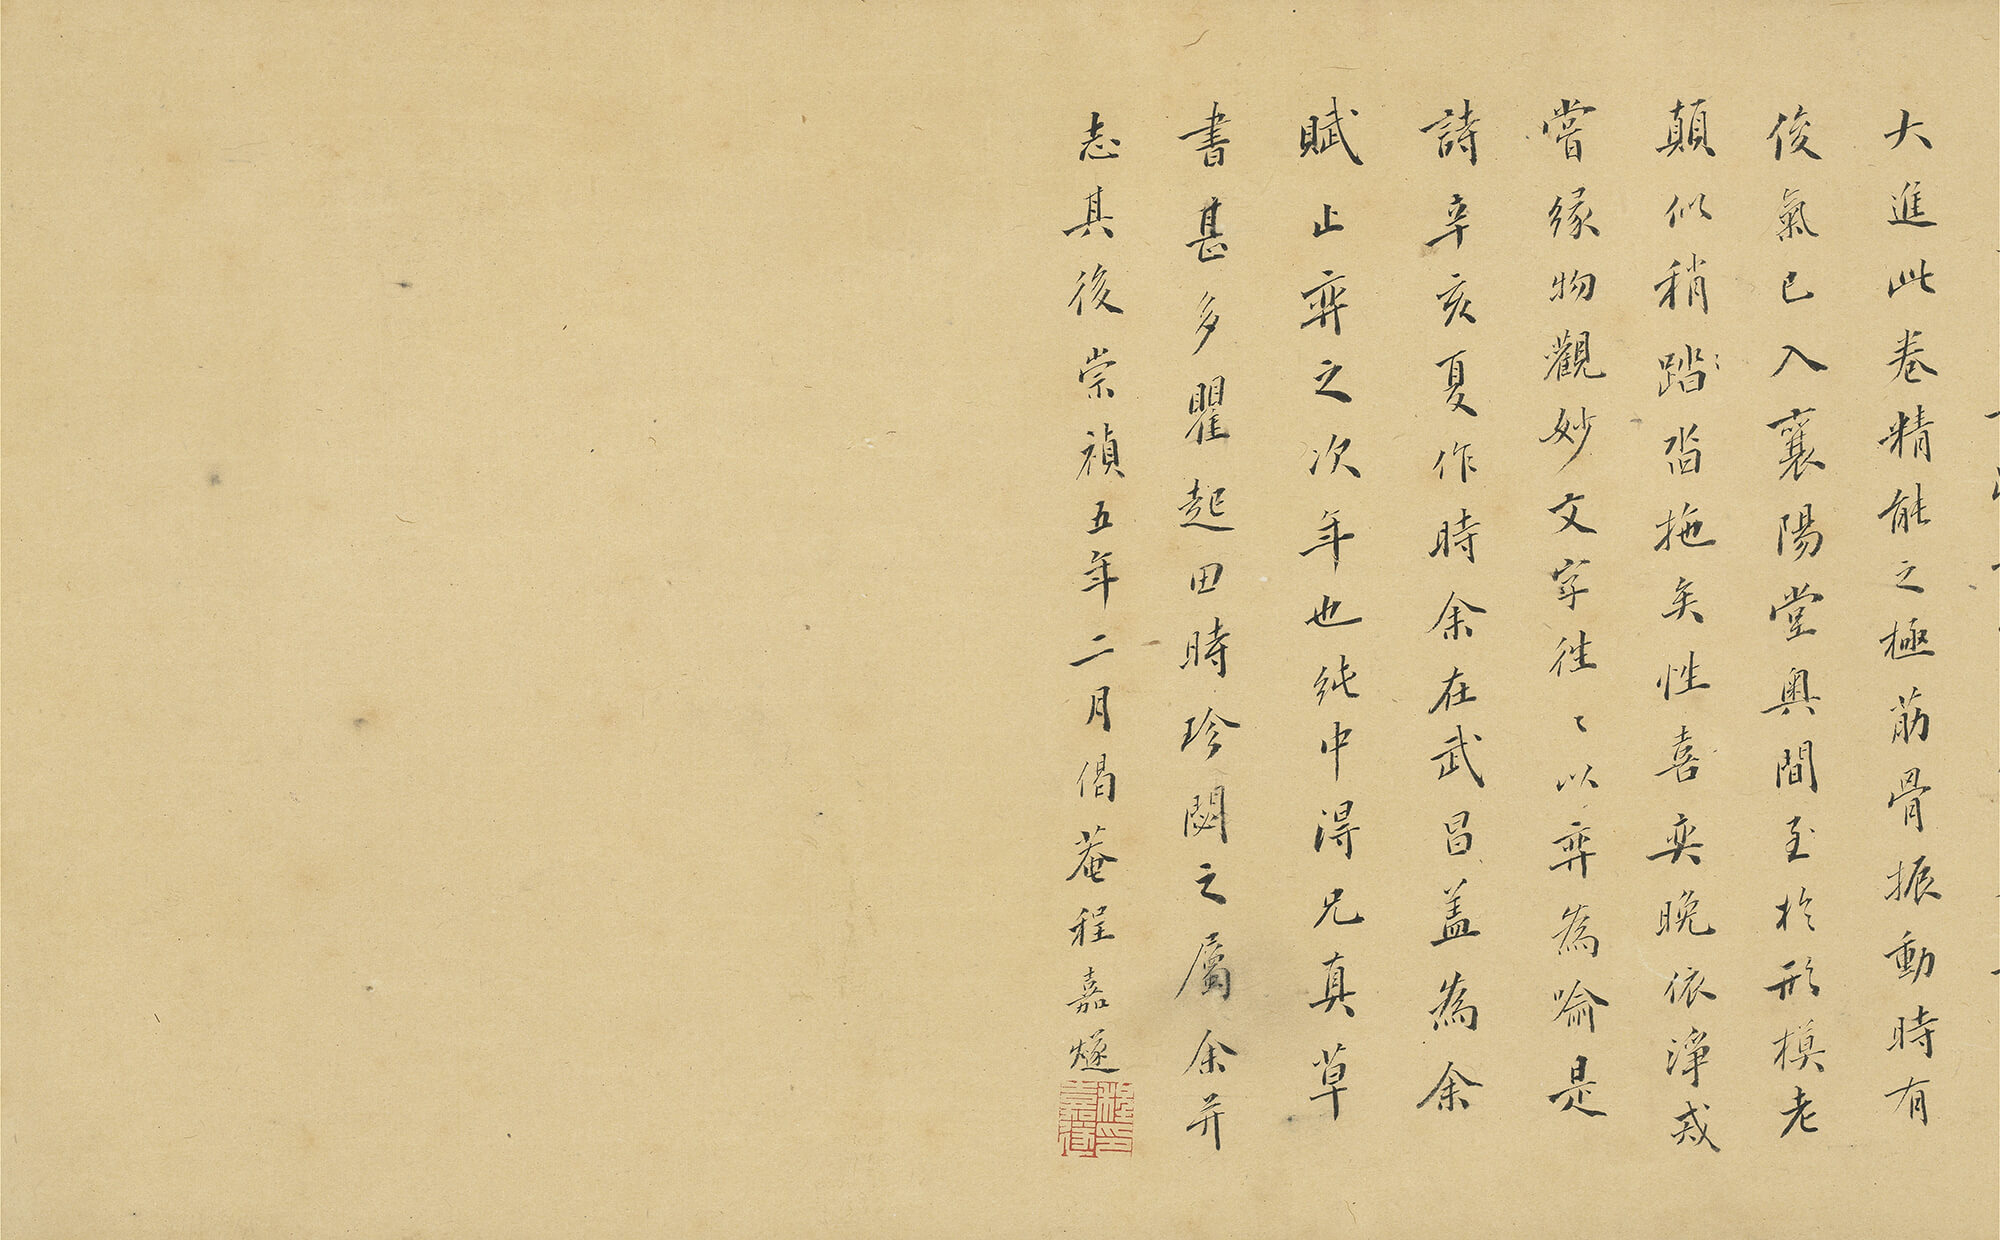 大進此卷精能之極筋骨振動時有
俊氣已入襄陽堂奥間至於形模老
顛似稍踏沓拖矣性喜奕晚依淨戒
嘗緣物觀妙文字徃〻以弈為喻是
詩辛亥夏作時余在武昌盖為余
賦止弈之次年也純中得兄真草
書甚多瞿起田時珍閟之屬余并
志其後崇禎五年二月偈菴程嘉燧